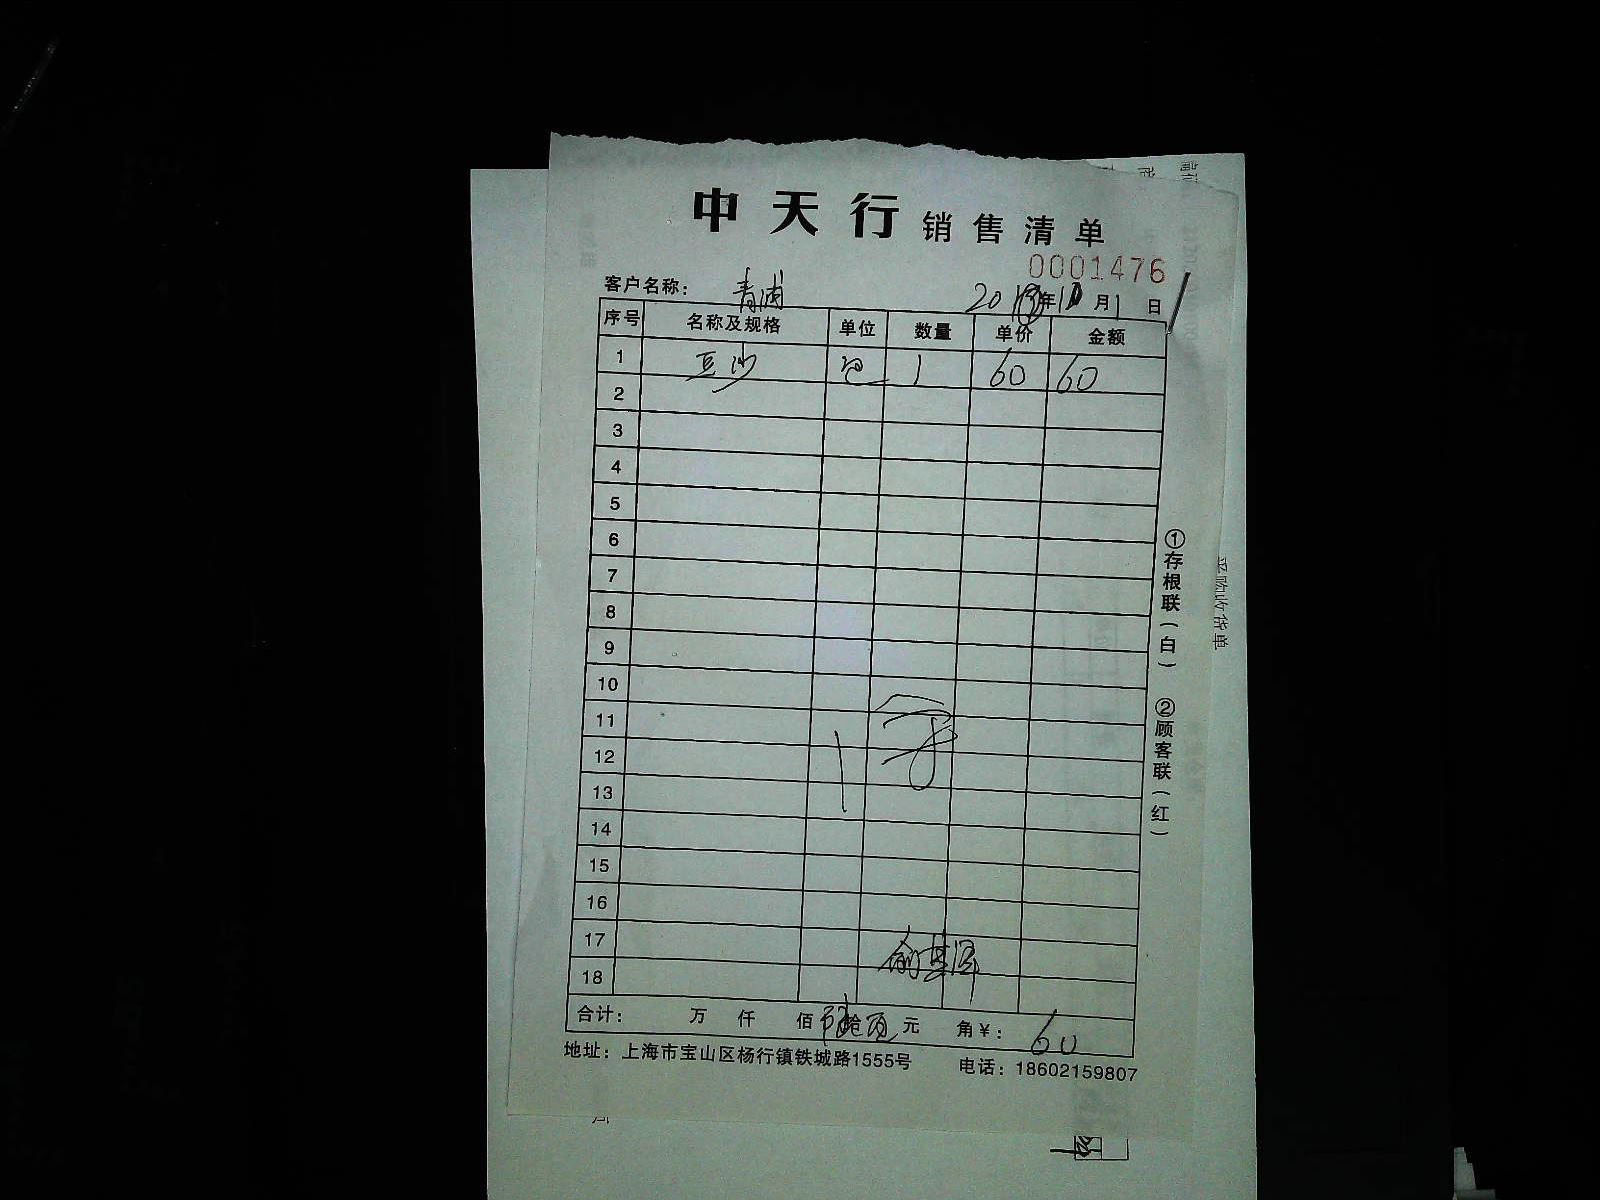 中天行销售清单
0001476
客户名称： 青浦 20 年 月1日
序号 名称及规格 单位 数量 单价 金额
1 豆沙 包 1 60 60
2
3
4
5
6
7
8
9
10
11
12
13
14
15
16
17
18
合计： 万 仟 佰 陆拾 元 角￥： 60
地址：上海市宝山区杨行镇铁城路1555号 电话：18602159807
①存根联（白） ②顾客联（红）
采购收货单